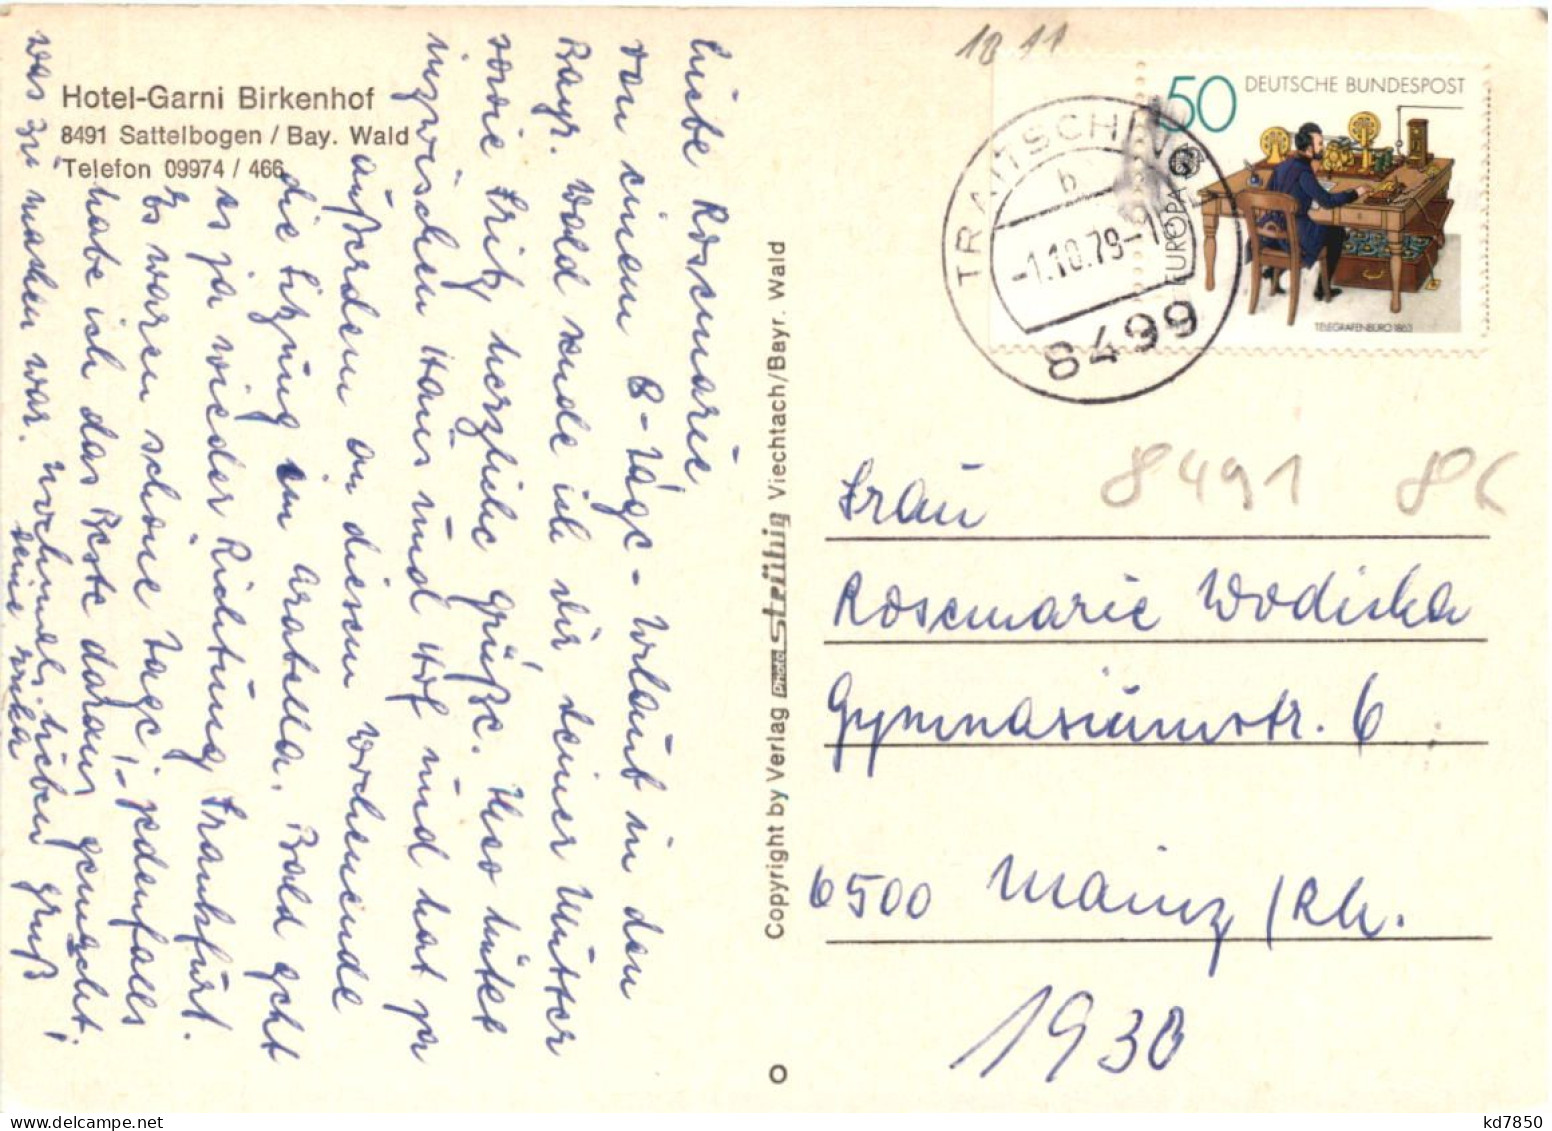 Hotel-Garni Birkenhof
8491 Sattelbogen / Bay. Wald
Telefon 09974 / 466
Liebe Rosemarie,
von einem 8-Tage-Urlaub in den
Bayr. Wald sende ich dir deiner Mutter
sowie Fritz herzliche Grüße. Uso hütet
inzwischen Haus und Hof und hat ja
außerdem an diesem Wochenende
die Sitzung in Bald geht
es ja wieder Richtung Frankfurt.
Es waren schöne Tage, jedenfalls
habe ich das Beste daraus gemacht,
was zu machen war. Nochmals lieben Gruß
deine Erika
Copyright by Verlag Photo Strühig Viechtach/Bayr. Wald
18 11
50 DEUTSCHE BUNDESPOST
EUROPA
TELEGRAFENBÜRO 1863
TRAITSCHING
b
-1.10.79-1
8499
8491 86
Frau
Rosemarie Wodiska
Gymnasiumstr. 6
6500 Mainz / Rh.
1930
kd7850